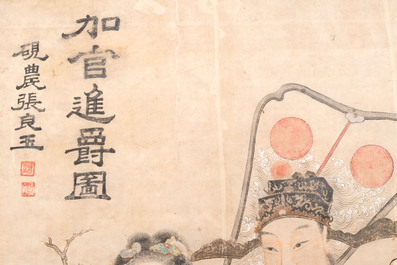 加官進爵圖
硯農張良玉